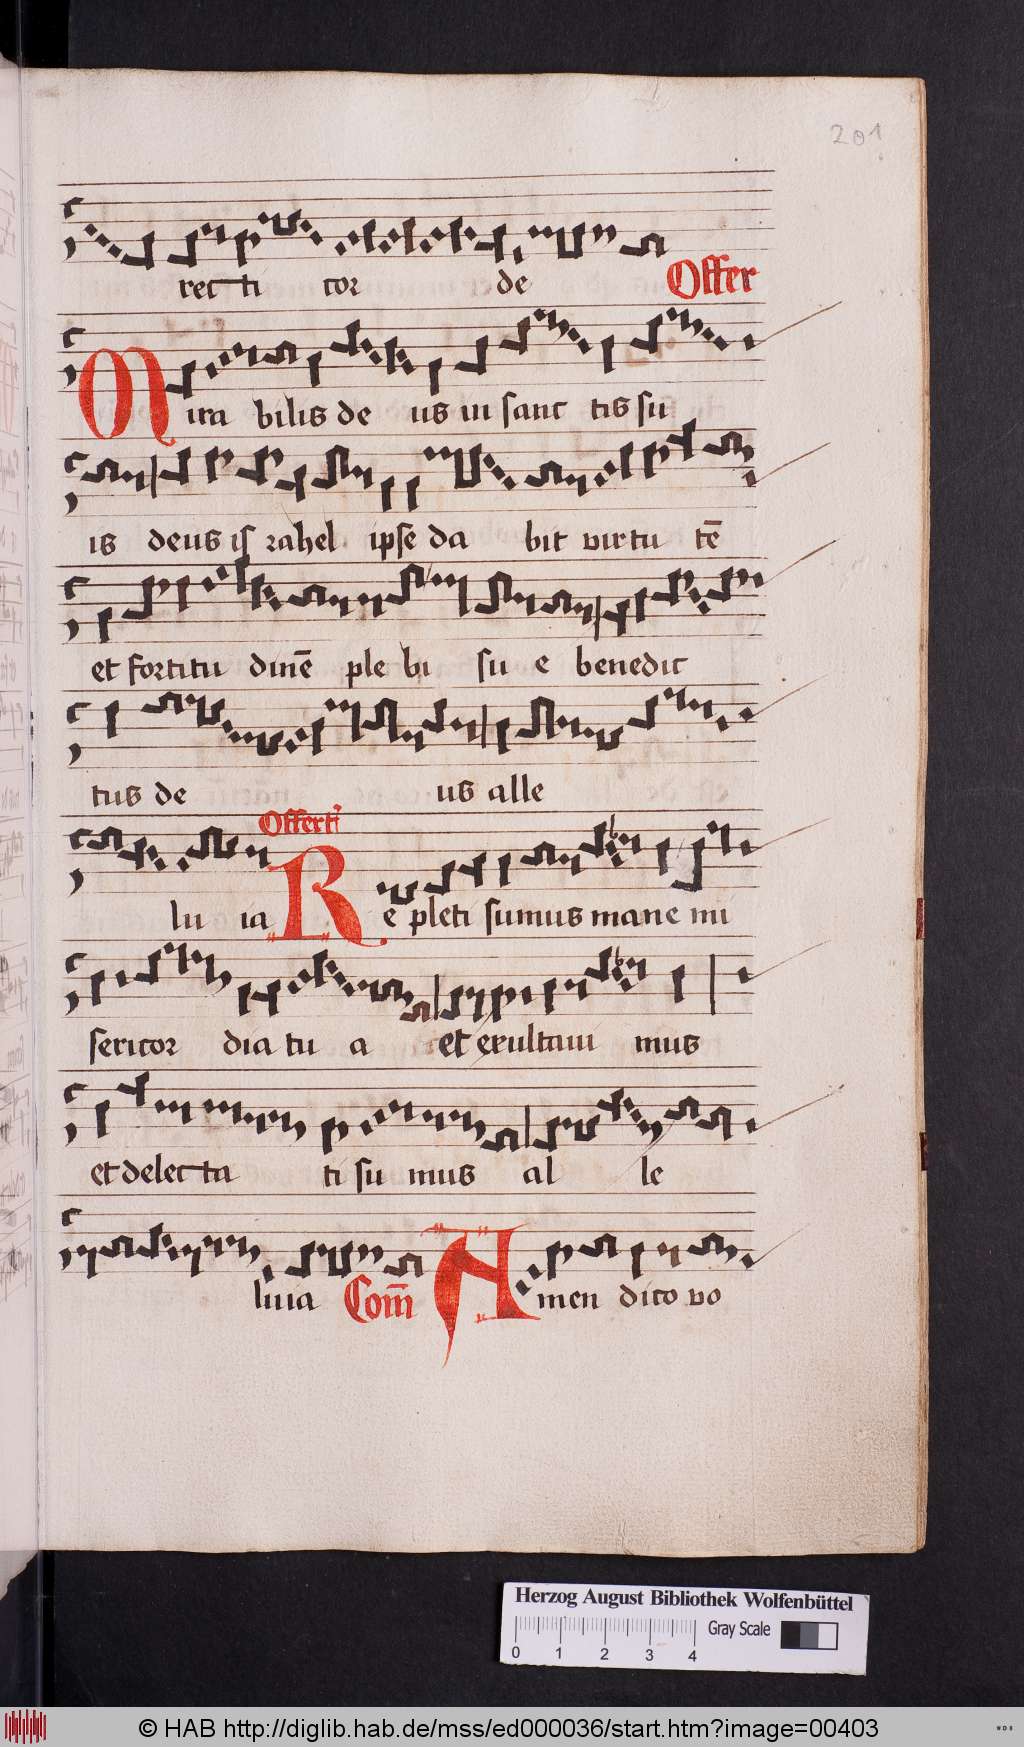 201
rec ti cor de Offer
Mira bilis de us in sanc tis su
is deus is rahel ipse da bit virtu tē
et fortitu dinē ple bi su e benedic
tus de us alle
Offertī
lu ia Re pleti sumus mane mi
sericor dia tu a et exultaui mus
et delec ta ti su mus al le
luia Com̄ Amen dico vo
Herzog August Bibliothek Wolfenbüttel
Gray Scale
0 1 2 3 4
© HAB http://diglib.hab.de/mss/ed000036/start.htm?image=00403